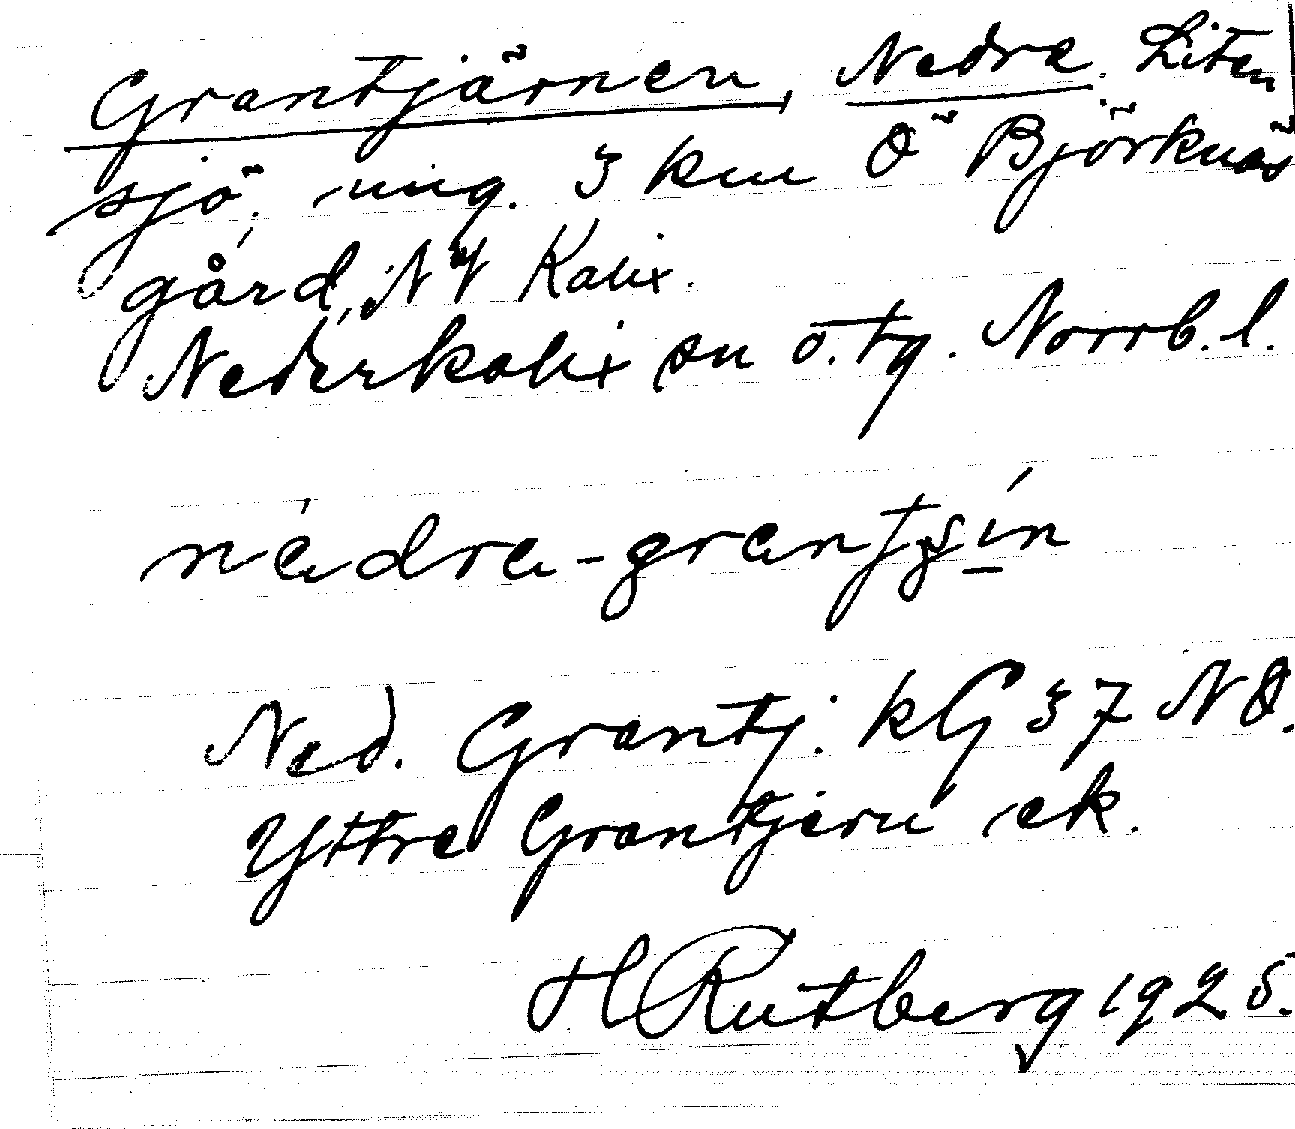 Grantjärnen, Nedre. Liten
sjö, ung. 3 km Ö Björknäs
gård, NV Kalix.
Nederkalix sn o. tg. Norrb. l.
nédra-grantjín
Ned. Grantj. kG 37 NÖ.
Yttre Grantjern ek.
H Rutberg 1925.